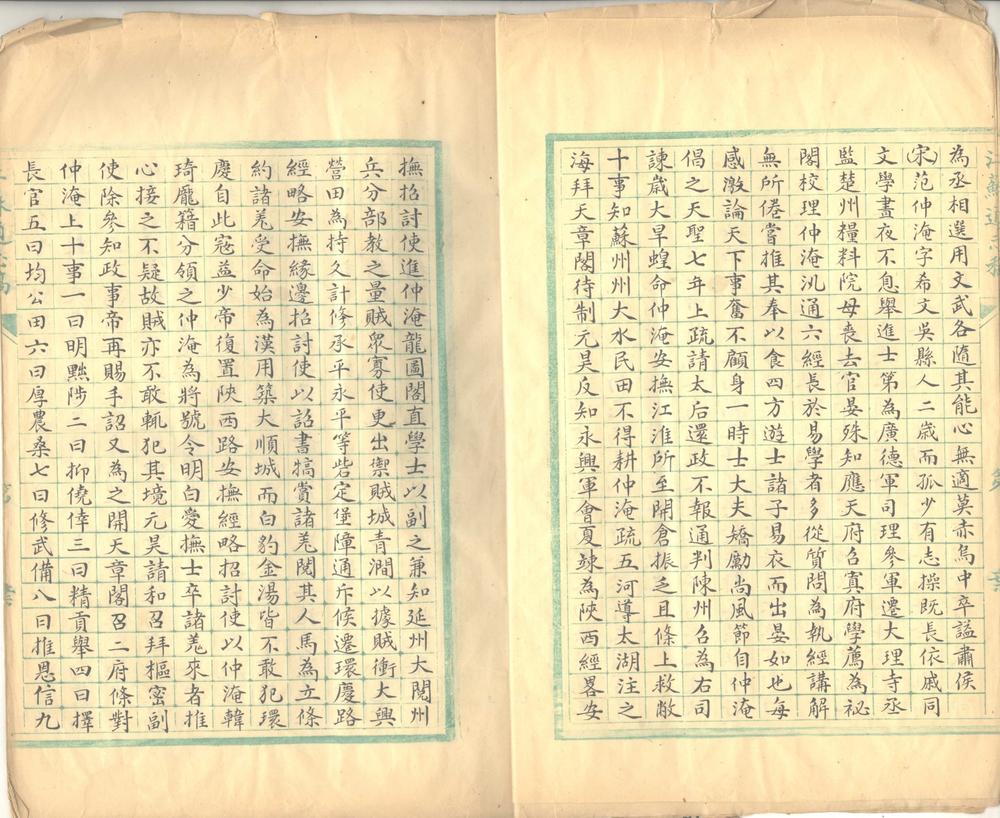 為丞相選用文武各隨其能心無適莫赤烏中卒謚肅侯
(宋)范仲淹字希文吳縣人二歲而孤少有志操既長依戚同
文學晝夜不息舉進士第為廣德軍司理參軍遷大理寺丞
監楚州糧料院母喪去官晏殊知應天府召寘府學薦為祕
閣校理仲淹汎通六經長於易學者多從質問為執經講解
無所倦嘗推其奉以食四方遊士諸子易衣而出晏如也每
感激論天下事奮不顧身一時士大夫矯勵尚風節自仲淹
倡之天聖七年上疏請太后還政不報通判陳州召為右司
諫歲大旱蝗命仲淹安撫江淮所至開倉振乏且條上救敝
十事知蘇州州大水民田不得耕仲淹疏五河導太湖注之
海拜天章閣待制元昊反知永興軍會夏竦為陝西經畧安
撫招討使進仲淹龍圖閣直學士以副之兼知延州大閱州
兵分部教之量賊眾寡使更出禦賊城青澗以據賊衝大興
營田為持久計修承平永平等砦定堡障通斥候遷環慶路
經略安撫緣邊招討使以詔書犒賞諸羌閱其人馬為立條
約諸羌受命始為漢用築大順城而白豹金湯皆不敢犯環
慶自此寇益少帝復置陝西路安撫經略招討使以仲淹韓
琦龐籍分領之仲淹為將號令明白愛撫士卒諸羌來者推
心接之不疑故賊亦不敢輒犯其境元昊請和召拜樞密副
使除參知政事帝再賜手詔又為之開天章閣召二府條對
仲淹上十事一曰明黜陟二曰抑僥倖三曰精貢舉四曰擇
長官五曰均公田六曰厚農桑七曰修武備八曰推恩信九